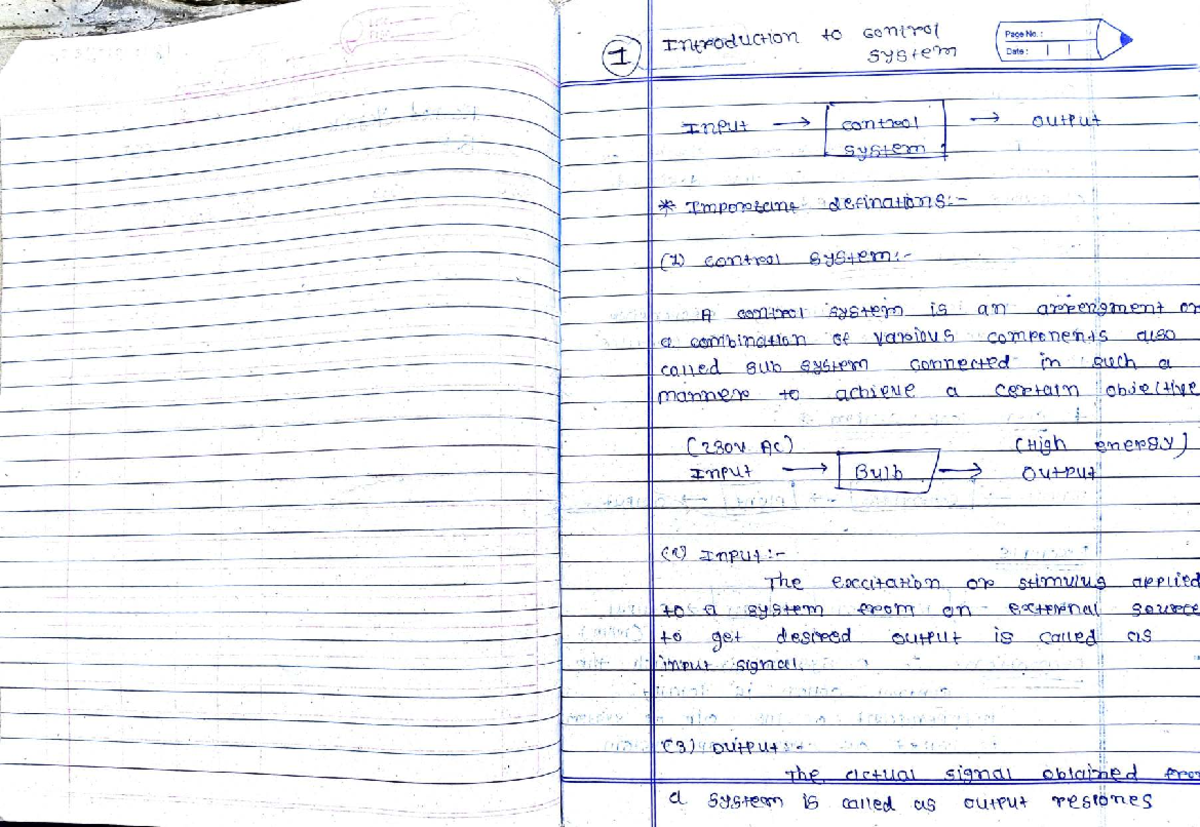 1
Introduction to control
system
Page No. :
Date :
Input → control → output
system
* Important definations:-
(1) control system:-
A control system is an arrengment or
a combination of various components also
called sub system connected in such a
manner to achieve a certain objective
(230V AC) (High energy)
Input → Bulb → Output
(2) Input :-
The excitation or stimulus applied
to a system from an external source
to get desired output is called as
input signal.
(3) output:-
The actual signal obtained from
a system is called as output respones